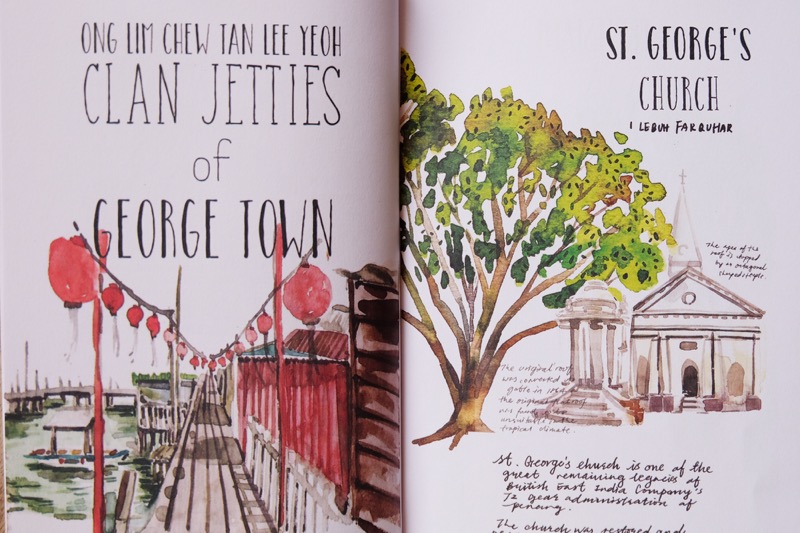 ONG LIM CHEW TAN LEE YEOH
CLAN JETTIES
of
GEORGE TOWN
ST. GEORGE'S
CHURCH
1 LEBUH FARQUHAR
The apex of the
roof is topped
by an octagonal
shaped steeple.
The original roof
was converted
gable in
the original
tropical climate.
St. George's church is one of the
great remaining legacies of
British East India Company's
72 year administration of
penang.
The church was restored and